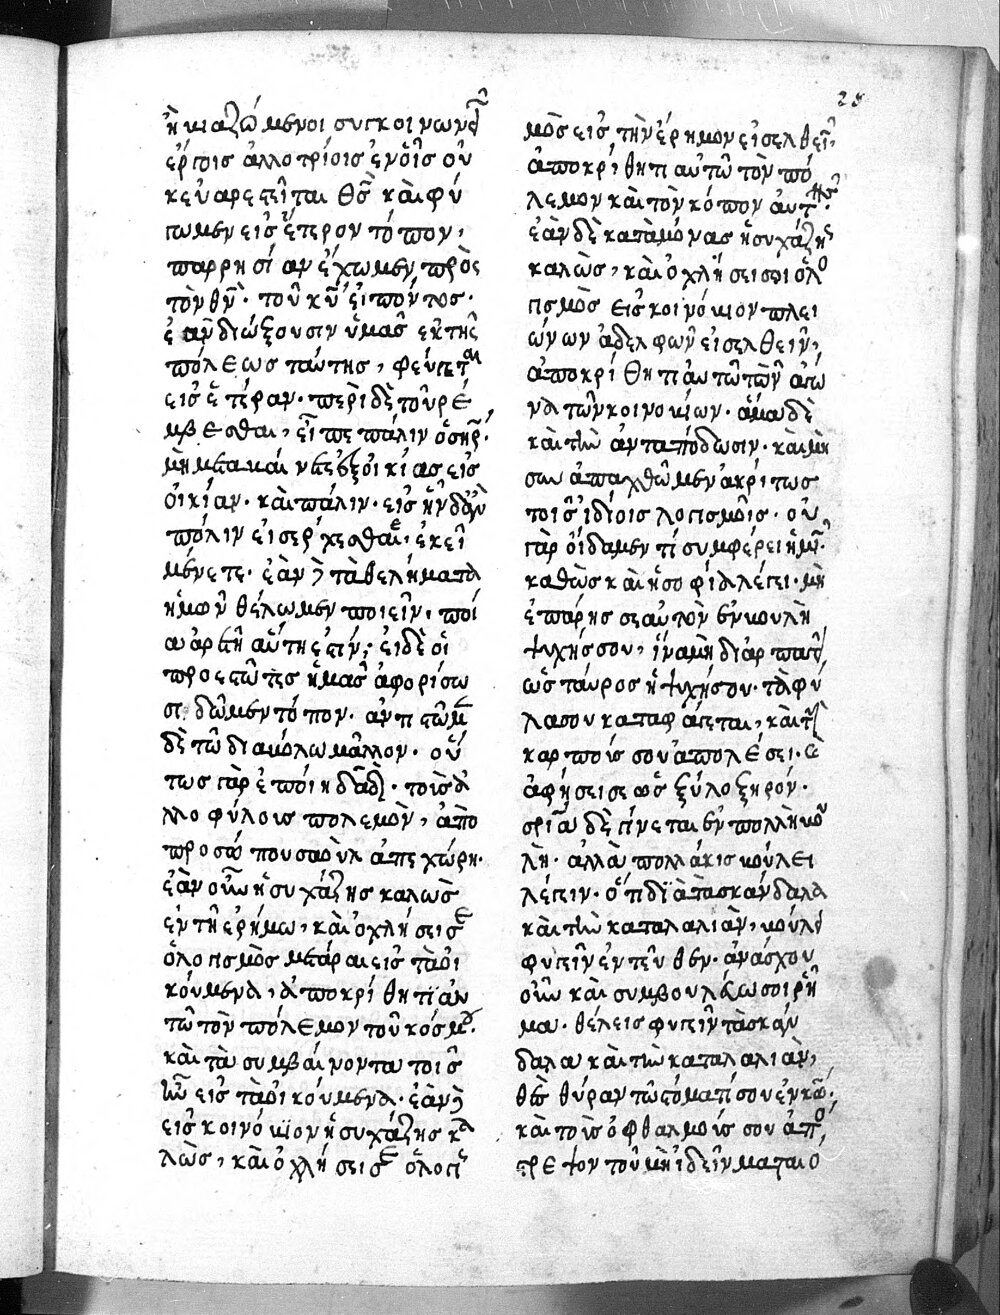 28
ἢ βιαζώμενοι συγκοινωνεῖν
ἔργοις ἀλλοτρίοις ἐν οἷς οὐ
κ εὐαρεστεῖται θς̅ καὶ φύ
γωμεν εἰς ἕτερον τόπον,
παρρησίαν ἔχωμεν πρὸς
τὸν θν̅· τοῦ κυ̅ εἰπόντος·
ἐὰν διώξουσιν ὑμᾶς ἐκ τῆς
πόλεως ταύτης, φεύγεται
εἰς ἑτέραν· περὶ δὲ τοῦ ρέ
μβεσθαι, εἶπε πάλιν ὁ σηρ·
μὴ μεταβαίνετε ἐξ οἰκίας εἰς
οἰκίαν· καὶ πάλιν· εἰς ἣν δἂν
πόλιν εἰσέρχεσθαι, ἐκεῖ
μένετε· ἐὰν δὲ τὰ θελήματα
ἡμῶν θέλωμεν ποιεῖν, ποί
α ἀρετὴ αὕτη ἐστίν; εἰ δὲ οἱ
προεστῶτες ἡμᾶς ἀφορίσω
σι, δῶμεν τόπον· ἀντιστῶμεν
δὲ τῶ διαβόλω μᾶλλον· οὕ
τως γὰρ ἐποίη δα̅δ̅· τοῖς ἀ
λλοφύλοις πολεμὸν, ἀπὸ
προσώπου σαοὺλ ἀπεχώρη·
ἐὰν οὖν ἡσυχάζης καλῶς
ἐν τῆ ἐρήμω, καὶ ὀχλήσει σε
ὁ λογισμὸς μετάραι εἰς τὰ οἰ
κούμενα, ἀποκρίθητι αὐ
τῶ τὸν πόλεμον τοῦ κόσμου·
καὶ τὰ συμβαίνοντα τοῖς
οὖσιν εἰς τὰ οἰκούμενα· ἐὰν δὲ
εἰς κοινόβιον ἡσυχάζης κα
λῶς, καὶ ὀχλήσει σε ὁ λογι
μὸς εἰς τὴν ἔρημον εἰσελθεῖν,
ἀποκρίθητι αὐτῶ τὸν πό
λεμον καὶ τὸν κόπον αὐτῆς·
ἐὰν δὲ καταμόνας ἡσυχάζης
καλῶς, καὶ ὀχλήσει σοι ὁ λο
γισμὸς εἰς κοινόβιον πλει
ώνων ἀδελφῶν εἰσελθεῖν,
ἀποκρίθητι αὐτῶ τὸν ἀγώ
να τῶν κοινοβίων· ἅμα δὲ
καὶ τὴν ἀνταπόδωσιν· καὶ μὴ
συναπαχθῶμεν ἀκρίτως
τοῖς ἰδίοις λογισμοῖς· οὐ
γὰρ οἴδαμεν τί συμφέρει ἡμῖν·
καθὼς καὶ ἡ σοφία λέγει· μὴ
ἐπάρης σεαυτὸν ἐν βουλῆ
ψυχῆς σου, ἵνα μὴ διαρπαγῆ
ὡς ταύρος ἡ ψυχή σου· τὰ φύ
λα σου καταφάγεται, καὶ τοὺς
καρποὺς σου ἀπολέσει· καὶ
ἀφήσει σε ὡς ξύλον ξηρόν·
σωτηρία δὲ γίνεται ἐν πολλῆ βου
λῆ· ἀλλὰ πολλάκις βούλει
λέγειν· ὅτι διὰ τὰ σκάνδαλα
καὶ τὴν καταλαλιὰν, βούλομαι
φυγεῖν ἐντεῦθεν· ἀνάσχου
οὖν καὶ συμβουλεύω σοι ρῆ
μα· θέλεις φυγεῖν τὰ σκάν
δαλα καὶ τὴν καταλαλιὰν,
θὲς θύραν τῶ στόματί σου ἐν κω̅,
καὶ τοὺς ὀφθαλμοὺς σου ἀπό
στρεψον τοῦ μὴ ἰδεῖν ματαιο